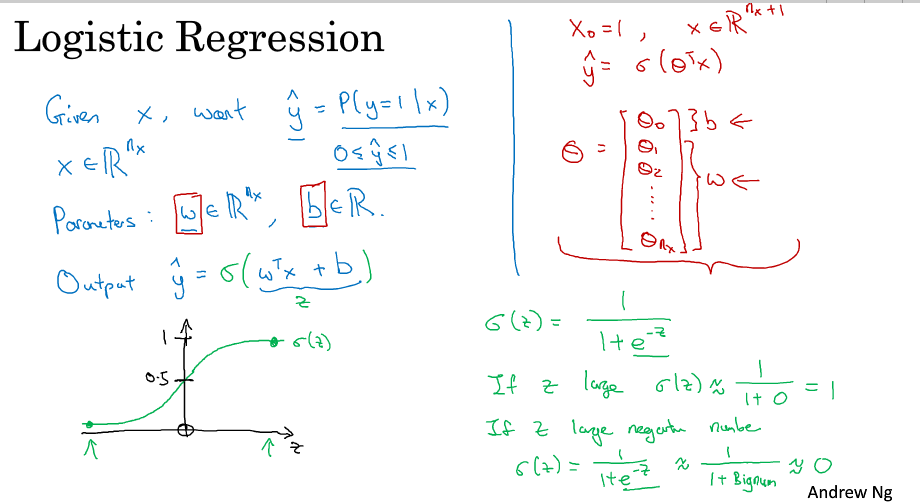 Logistic Regression
Given x, want ŷ = P(y=1|x)
0 ≤ ŷ ≤ 1
x ∈ ℝ^{n_x}
Parameters: w ∈ ℝ^{n_x}, b ∈ ℝ.
Output ŷ = σ(w^T x + b)
z
1
σ(z)
0.5
z
x₀ = 1, x ∈ ℝ^{n_x+1}
ŷ = σ(θ^T x)
θ = [θ₀ θ₁ θ₂ ⋮ θ_{n_x}] }b ← }w ←
σ(z) = 1/(1+e^{-z})
If z large σ(z) ≈ 1/(1+0) = 1
If z large negative number
σ(z) = 1/(1+e^{-z}) ≈ 1/(1+Bignum) ≈ 0
Andrew Ng